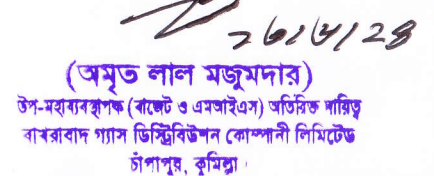 ২৬/৬/২৪
(অমৃত লাল মজুমদার)
উপ-মহাব্যবস্থাপক (বাজেট ও এমআইএস) অতিরিক্ত দায়িত্ব
বাখরাবাদ গ্যাস ডিস্ট্রিবিউশন কোম্পানী লিমিটেড
চাঁপাপুর, কুমিল্লা